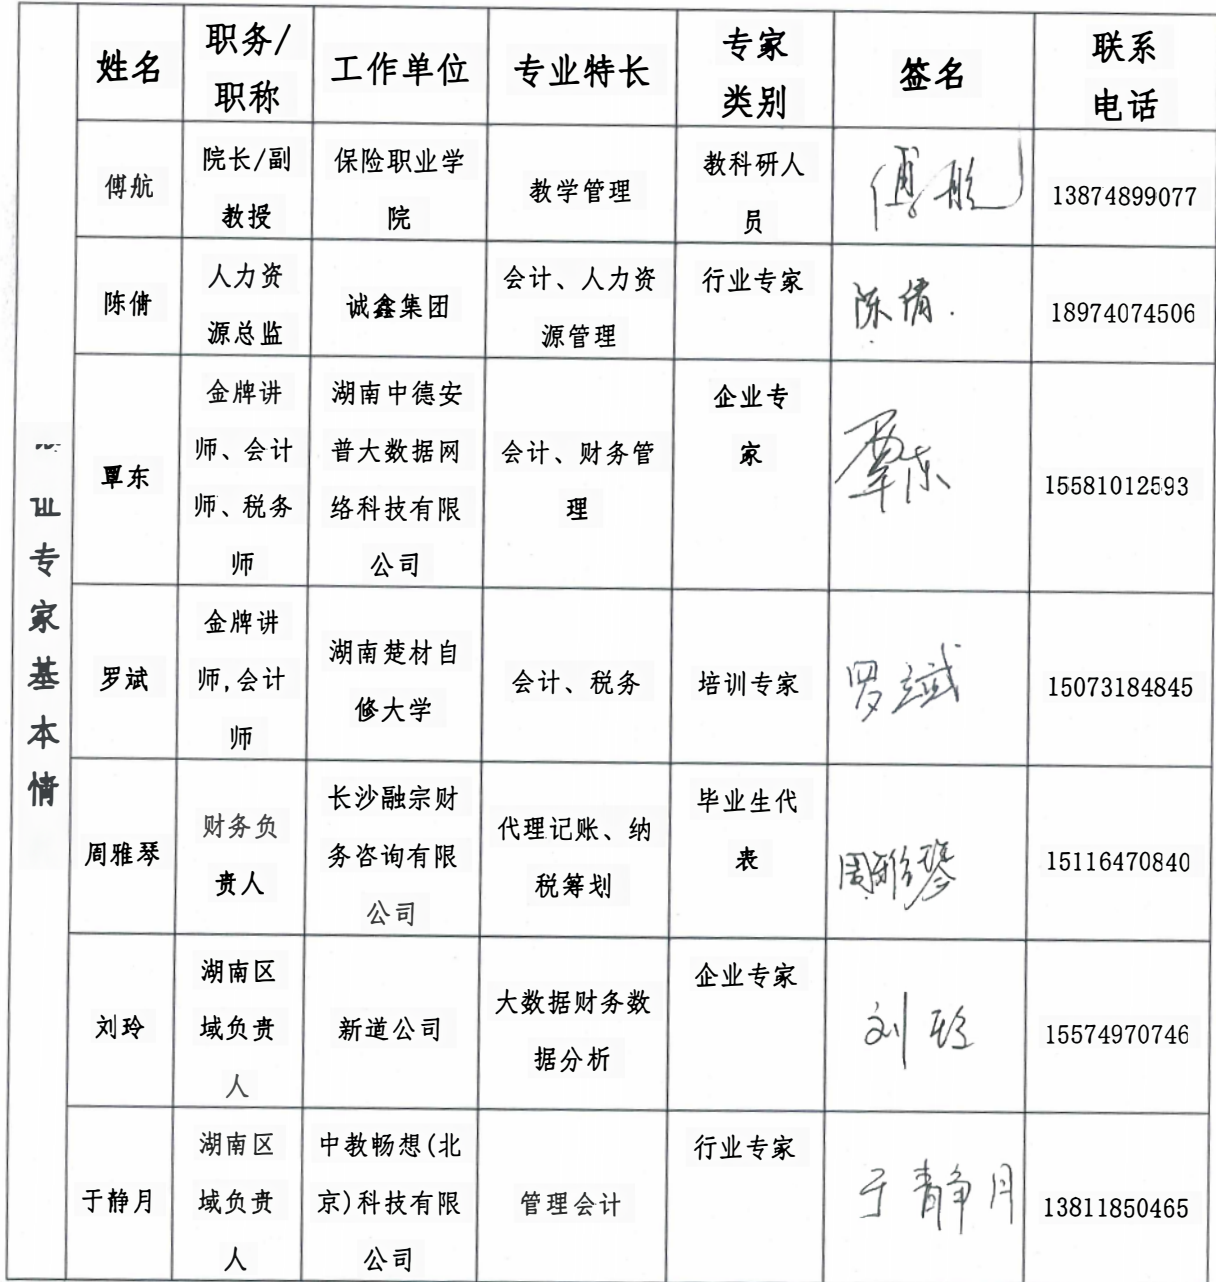 姓名 职务/职称 工作单位 专业特长 专家类别 签名 联系电话
傅航 院长/副教授 保险职业学院 教学管理 教科研人员 傅航 13874899077
陈倩 人力资源总监 诚鑫集团 会计、人力资源管理 行业专家 陈倩. 18974074506
覃东 金牌讲师、会计师、税务师 湖南中德安普大数据网络科技有限公司 会计、财务管理 企业专家 覃东 15581012593
罗斌 金牌讲师,会计师 湖南楚材自修大学 会计、税务 培训专家 罗斌 15073184845
周雅琴 财务负责人 长沙融宗财务咨询有限公司 代理记账、纳税筹划 毕业生代表 周雅琴 15116470840
刘玲 湖南区域负责人 新道公司 大数据财务数据分析 企业专家 刘玲 15574970746
于静月 湖南区域负责人 中教畅想(北京)科技有限公司 管理会计 行业专家 于静月 13811850465
专家基本情